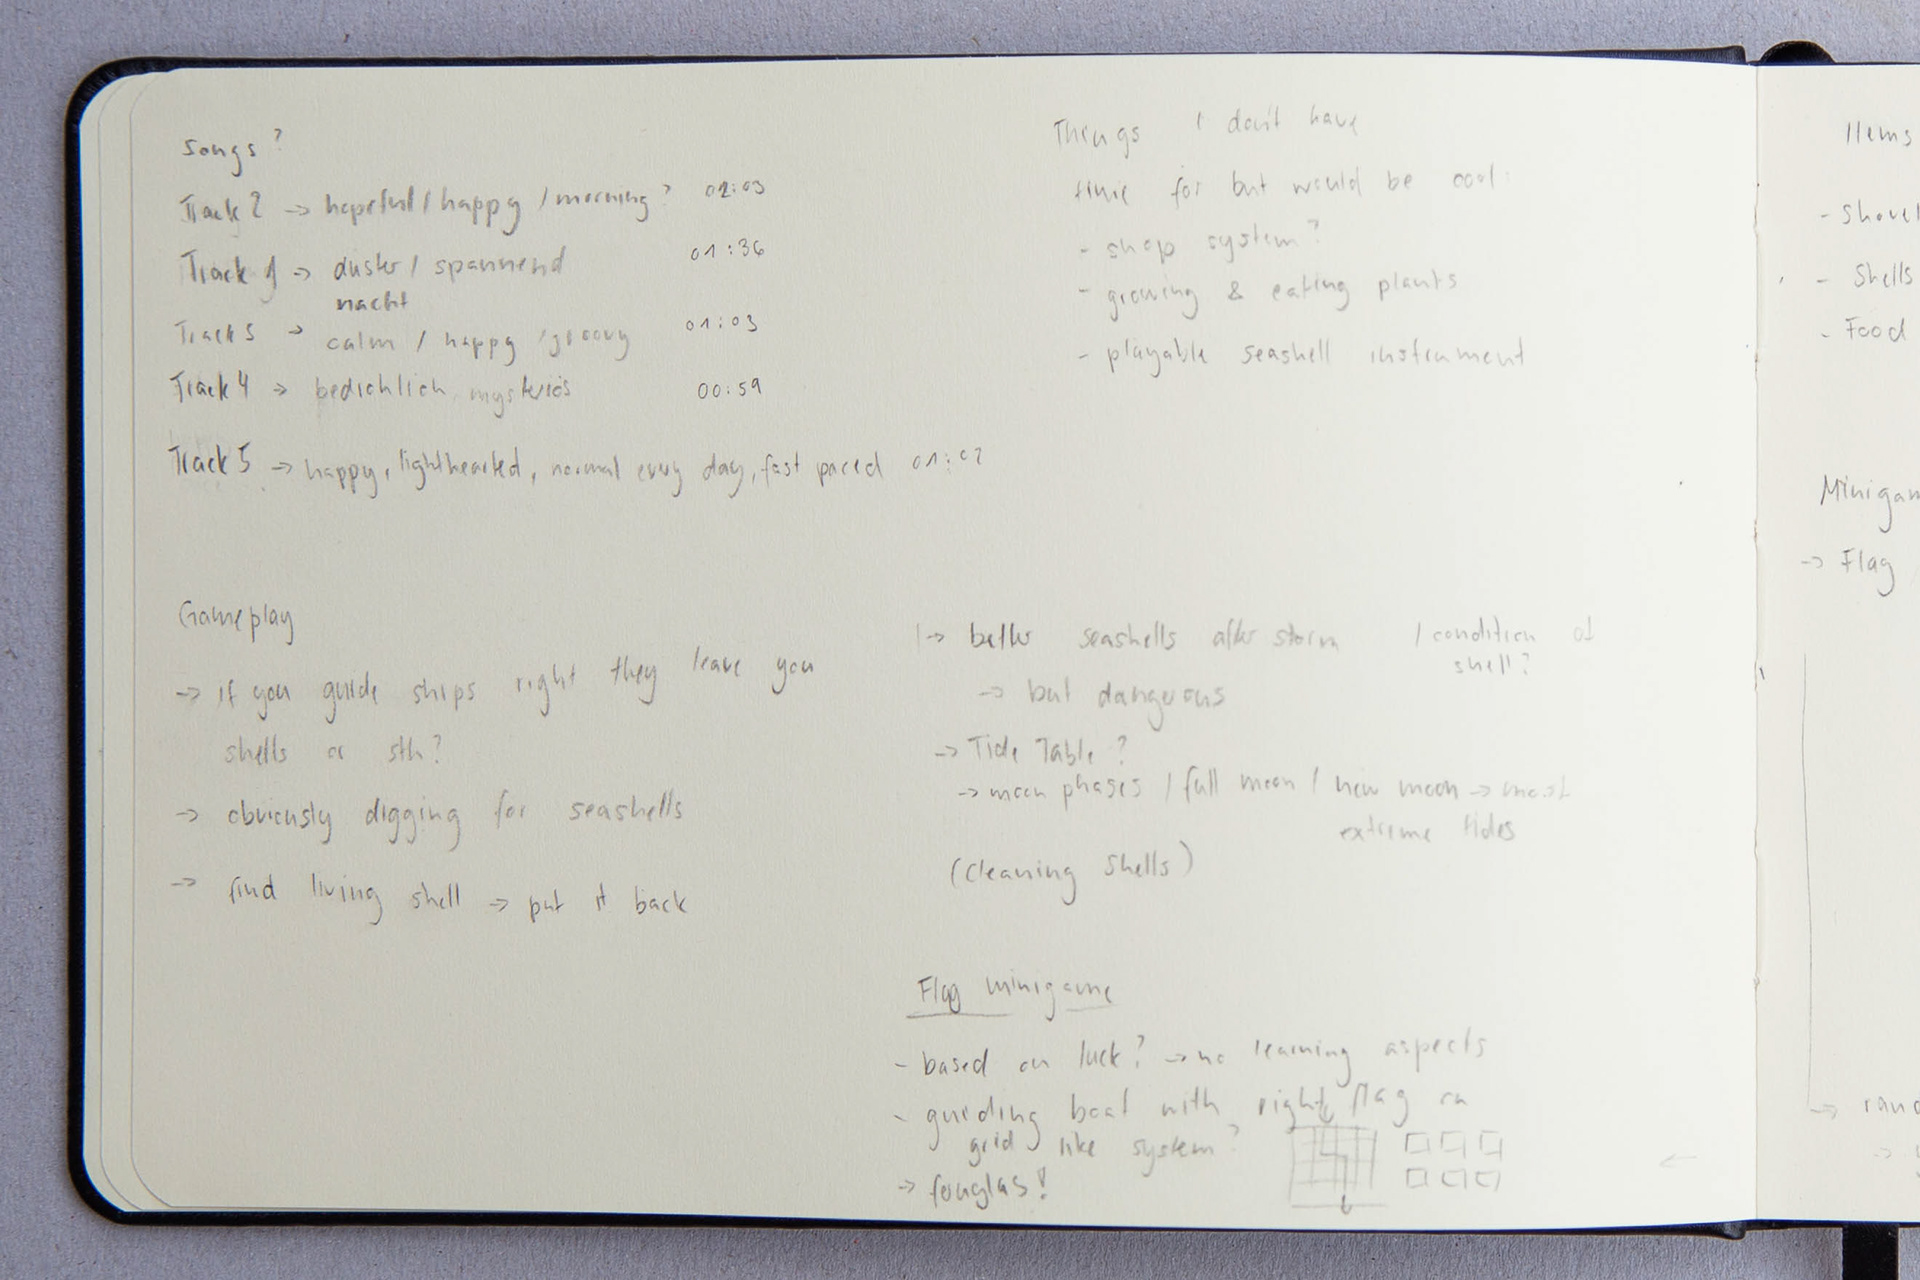 Songs?
Track 2 -> hopefull / happy / morning? 02:03
Track 1 -> duster / spannend 01:36
nacht
Track 3 -> calm / happy / groovy 01:03
Track 4 -> bedichlich mysteriös 00:59
Track 5 -> happy, lighthearted, normal every day, fast paced 01:02
Things I don't have
time for but would be cool:
- shop system?
- growing & eating plants
- playable seashell instrument
Gameplay
-> if you guide ships right they leave you
shells or sth?
-> obviously digging for seashells
-> find living shell -> put it back
-> better seashells after storm / condition of
shell?
-> but dangerous
-> Tide Table?
-> moon phases / full moon / new moon -> most
extreme tides
(cleaning shells)
Flag minigame
- based on luck? -> no learning aspects
- guiding boat with right flag on
grid like system?
-> fernglas!
Items
- Shovel
- Shells
- Food
Minigam
-> Flag
-> rand